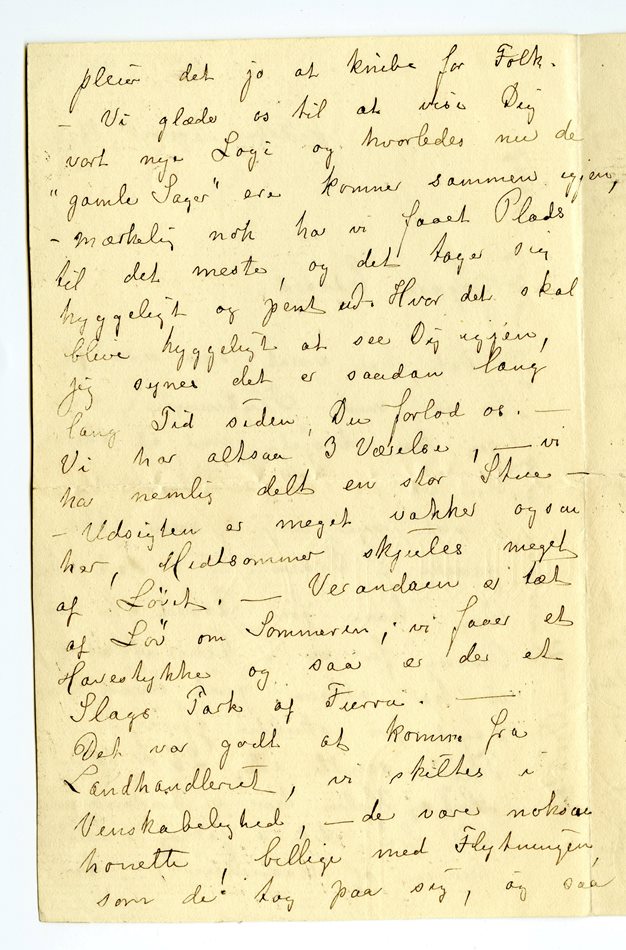 pleier det jo at knibe for Folk.
– Vi glæde os til at vise Dig
vort nye Logi og hvorledes nu de
"gamle Sager" ere kommer sammen igjen,
– mærkelig nok har vi faaet Plads
til det meste, og det tager sig
hyggeligt og pent ud. Hvor det skal
blive hyggeligt at see Dig igjen,
jeg synes det er saadan lang
lang Tid siden, Du forlod os. –
Vi har altsaa 3 Værelse, – vi
ha nemlig delt en stor Stue –
– Udsigten er meget vakker ogsaa
her, Midtsommer skjules meget
af Løvet. – Verandaen er tæt
af Løv om Sommeren; vi faaer et
Havestykke og saa er der et
Slags Park af Furru. –
Det var godt at komme fra
Landhandleriet, vi skiltes i
Venskabelighed, – de vare noksaa
honette, billige med Flytningen,
som de tog paa sig, og saa